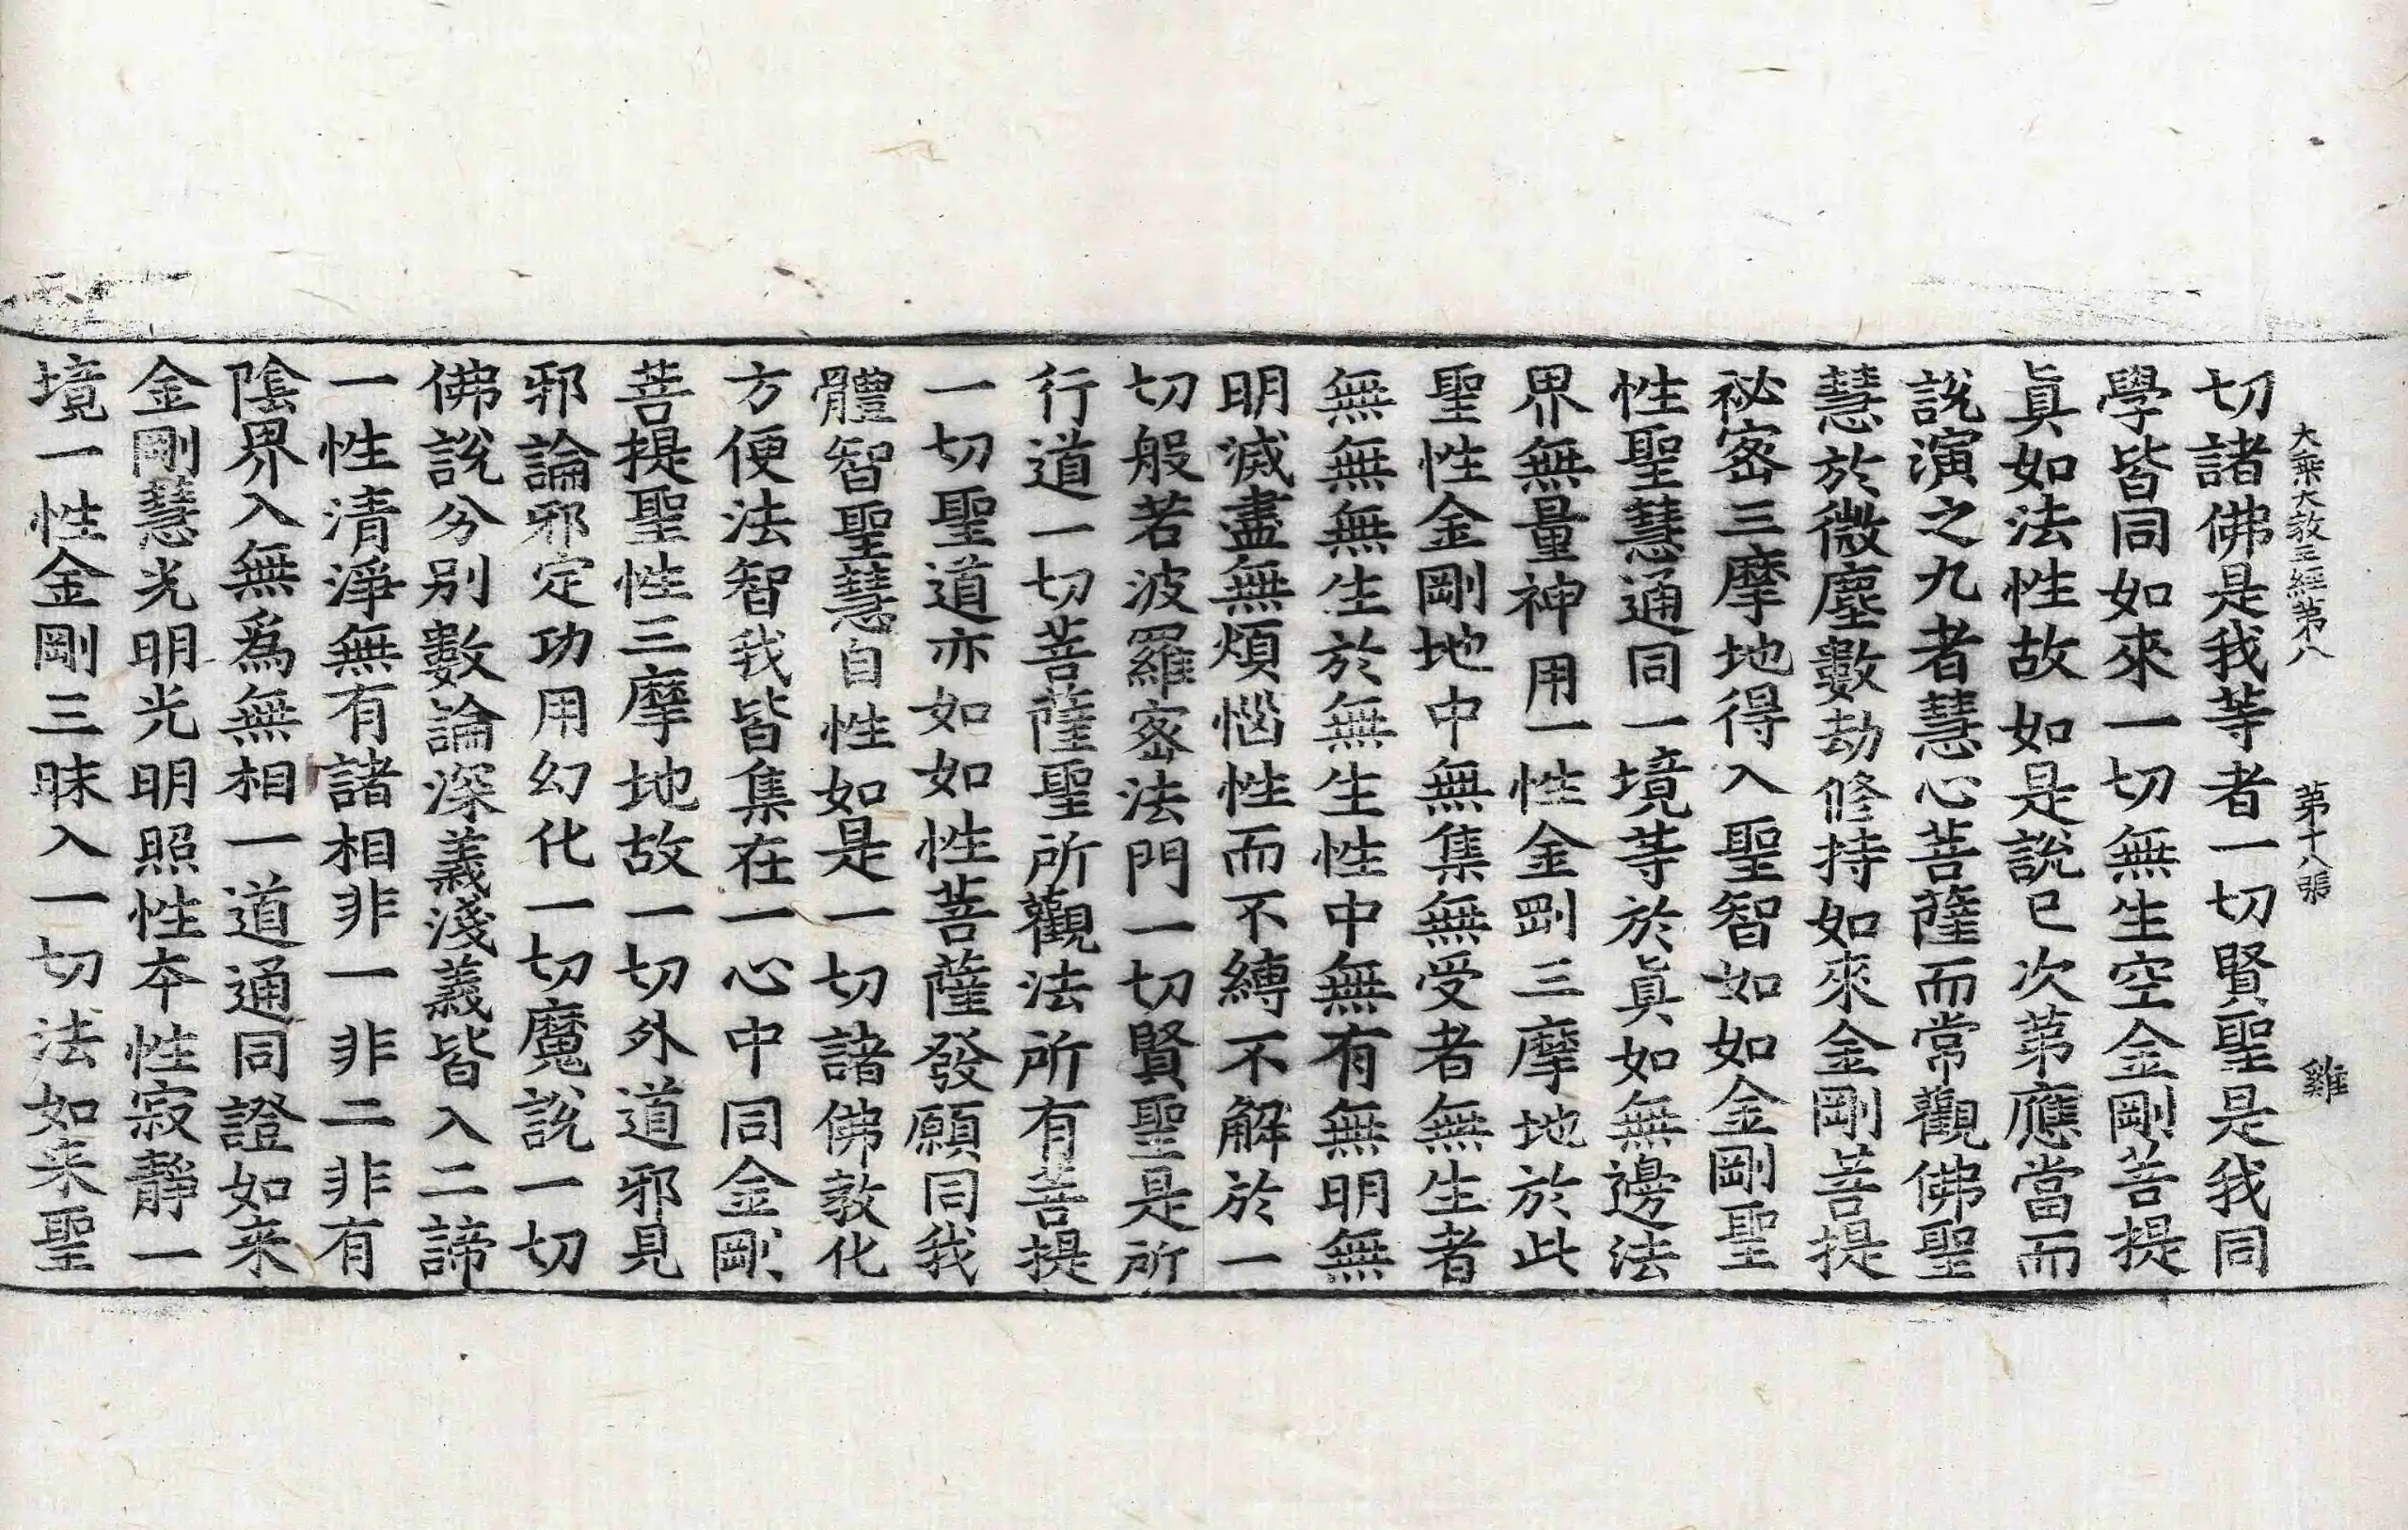 大乘大教王經第八　第十八張　雞
切諸佛是我等者一切賢聖是我同
學皆同如來一切無生空金剛菩提
眞如法性故如是說已次第應當而
說演之九者慧心菩薩而常觀佛聖
慧於微塵數劫修持如來金剛菩提
祕密三摩地得入聖智如如金剛聖
性聖慧通同一境等於眞如無邊法
界無量神用一性金剛三摩地於此
聖性金剛地中無集無受者無生者
無無無生於無生性中無有無明無
明滅盡無煩惱性而不縛不解於一
切般若波羅密法門一切賢聖是所
行道一切菩薩聖所觀法所有菩提
一切聖道亦如如性菩薩發願同我
體智聖慧自性如是一切諸佛教化
方便法智我皆集在一心中同金剛
菩提聖性三摩地故一切外道邪見
邪論邪定功用幻化一切魔說一切
佛說分別數論深義淺義皆入二諦
一性清淨無有諸相非一非二非有
陰界入無爲無相一道通同證如来
金剛慧光明光明照性本性寂靜一
境一性金剛三昧入一切法如来聖